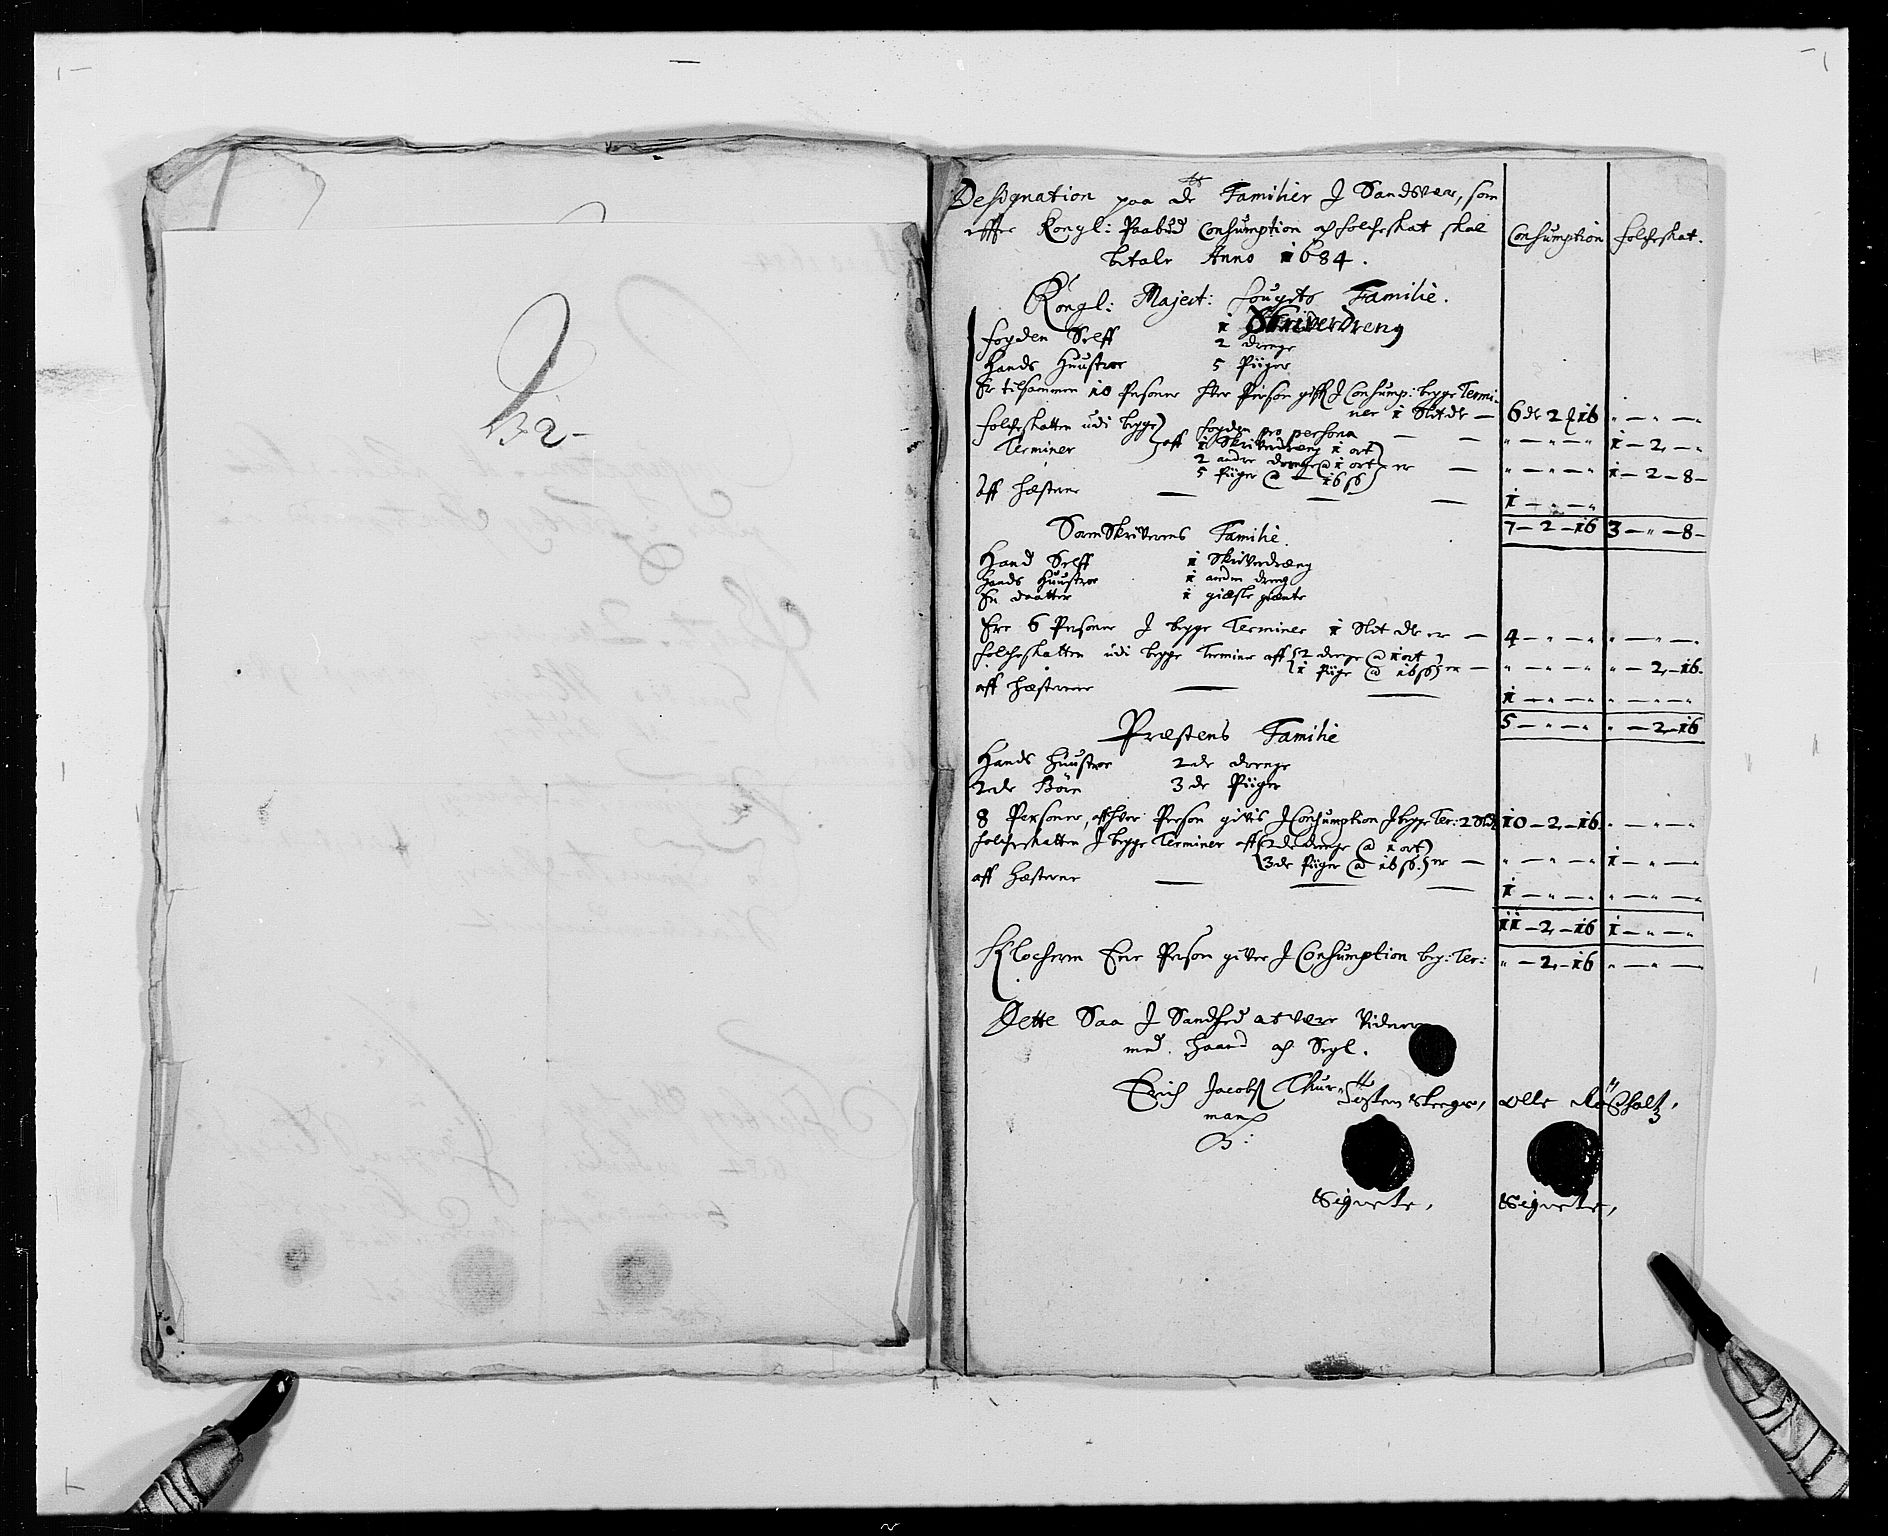 132-
Designation paa de Familier J Sandsvær, som
effter Kongl: Paabud Consumption och folcheskat skal
betale Anno 1684.
Consumption folcheskat.
Kongl: Majest: fougets Familie.
fogden Selff 1 Skriverdreng
2 drenge
Hands Huustroe 5 Piiger
Er tilsammen 10 Personer Hver Person giffr J Consump: begge Termi-
ner 1 Slit dr — 6 dr 2 ʃ 16 " — " — "
folcheskatten udi begge fogden pro persona — — " — " — " 1 — 2 — "
Terminer aff 1 Skriverdræng 1 ort
2 andre drenge @ 1 ort er — " — " — " 1 — 2 — 8 —
5 Piiger @ — 16 s
aff Hæsterne — — — 1 — " — "
7 — 2 — 16 3 — " — 8 —
SorenSkriverens Familie.
Hand Selff 1 Skriverdræng
Hands Huustroe 1 anden dreng
En daatter 1 giæste giente
Ere 6 Personer J begge Terminer 1 Slit dr er — 4 — " — " " — " — "
folcheskatten udi begge Terminer aff 2 drenge @ 1 ort
1 Piige @ 16 s er — " — " — " " — 2 — 16.
aff Hæsterne — — 1 — " — " " — " — "
5 — " — " " — 2 — 16
Præstens Familie
Hands Huustroe 2de drenge
2de Börn 3de Piiger
8 Personer, aff hver Person givis J Consumption J begge Ter: 2 Sldr 10 — 2 — 16. " — " — "
folcheskatten J begge Terminer aff 2de drenge @ 1 ort
3de Piiger @ 16 s. er — " — " — " 1 — " — "
aff Hæsterne — — — 1 — " — " " — " — "
11 — 2 — 16 1 — " — "
Klocheren Een Person giver J Consumption beg: Ter: " — 2 — 16 " — " — "
Dette Saa J Sandhed at være Vidner
med haand och Segl.
Erich Jacobs Thur- olle
man
Signete, Signete,